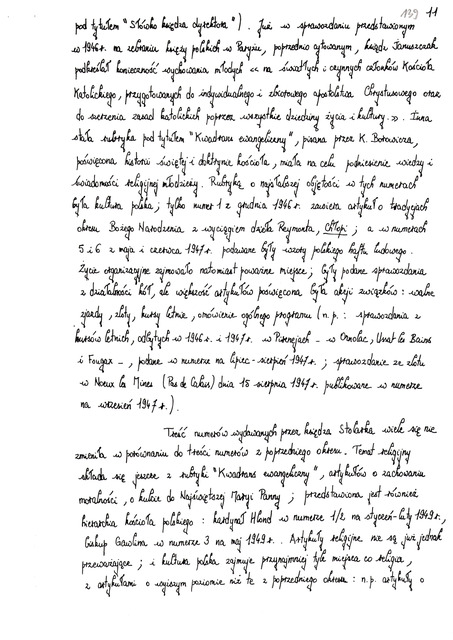 139 11
pod tytułem "Słówko księdza dyrektora"). Już w sprawozdaniu przedstawionym
w 1946 r. na zebraniu księży polskich w Paryżu, poprzednio cytowanym, ksiądz Januszczak
podkreślał konieczność wychowania młodych << na światłych i czynnych członków Kościoła
Katolickiego, przygotowanych do indywidualnego i zbiorowego apostolstwa Chrystusowego oraz
do szerzenia zasad katolickich poprzez wszystkie dziedziny życia i kultury. >>. Inna
stała rubryka pod tytułem "Kwadrans ewangeliczny", pisana przez K. Borowicza,
poświęcona historii świętej i doktrynie kościoła, miała na celu podniesienie wiedzy i
świadomości religijnej młodzieży. Rubryką o najsłabszej objętości w tych numerach
była kultura polska; tylko numer 1 z grudnia 1946 r. zawiera artykuł o tradycjach
okresu Bożego Narodzenia z wyciągiem dzieła Reymonta, Chłopi; a w numerach
5 i 6 z maja i czerwca 1947 r. podawane były wzory polskiego haftu ludowego.
Życie organizacyjne zajmowało natomiast poważne miejsce; były podane sprawozdania
z działalności kół, ale większość artykułów poświęcona była akcji związków: walne
zjazdy, zloty, kursy letnie, omówienie ogólnego programu (n.p.: sprawozdania z
kursów letnich, odbytych w 1946 r. i 1947 r. w Pirenejach - w Ornolac, Ussat les Bains
i Fougax -, podane w numerze na lipiec-sierpień 1947 r.; sprawozdanie ze zlotu
w Noeux les Mines (Pas de Calais) dnia 15 sierpnia 1947 r. publikowane w numerze
na wrzesień 1947 r.).
Treść numerów wydawanych przez księdza Stolarka wiele się nie
zmieniła w porównaniu do treści numerów z poprzedniego okresu. Temat religijny
składa się jeszcze z rubryki "Kwadrans ewangeliczny", artykułów o zachowaniu
moralności, o kulcie do Najświętszej Maryi Panny; przedstawiona jest również
hierarchia kościoła polskiego: kardynał Hlond w numerze 1/2 na styczeń-luty 1949 r.,
biskup Gawlina w numerze 3 na maj 1949 r. Artykuły religijne nie są już jednak
przeważające; i kultura polska zajmuje przynajmniej tyle miejsca co religia,
z artykułami o wyższym poziomie niż te z poprzedniego okresu: n.p. artykuły o